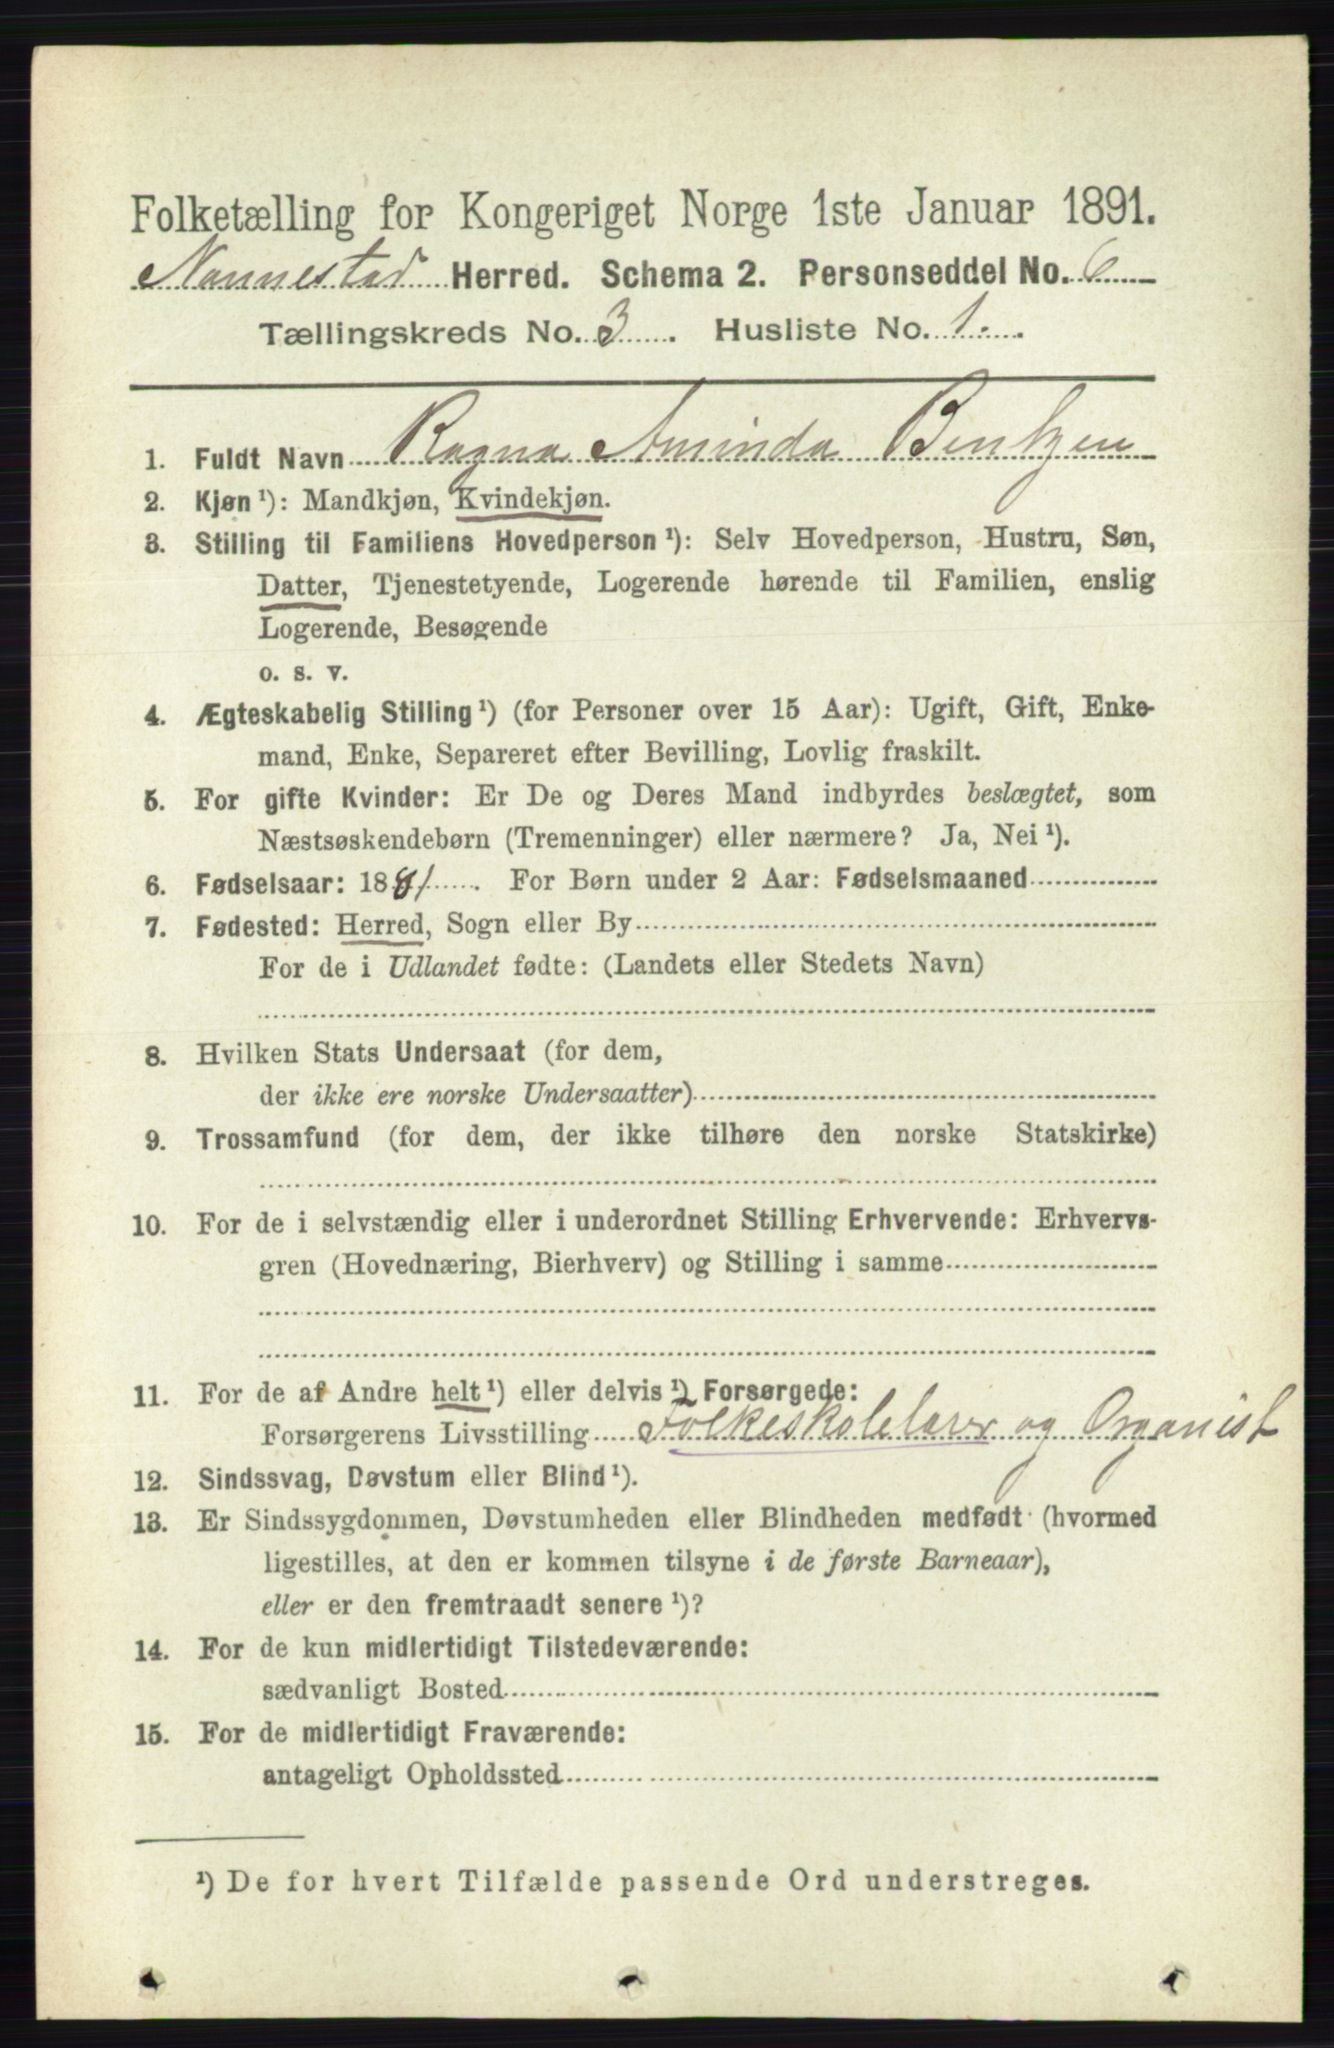 Folketælling for Kongeriget Norge 1ste Januar 1891.
Nannestad Herred. Schema 2. Personseddel No. 6
Tællingskreds No. 3. Husliste No. 1.
1. Fuldt Navn Ragna Aminda Bentzen
2. Kjøn ¹): Mandkjøn, Kvindekjøn.
3. Stilling til Familiens Hovedperson ¹): Selv Hovedperson, Hustru, Søn,
Datter, Tjenestetyende, Logerende hørende til Familien, enslig
Logerende, Besøgende
o. s. v.
4. Ægteskabelig Stilling ¹) (for Personer over 15 Aar): Ugift, Gift, Enke-
mand, Enke, Separeret efter Bevilling, Lovlig fraskilt.
5. For gifte Kvinder: Er De og Deres Mand indbyrdes beslægtet, som
Næstsøskendebørn (Tremenninger) eller nærmere? Ja, Nei ¹).
6. Fødselsaar: 1881. For Børn under 2 Aar: Fødselsmaaned
7. Fødested: Herred, Sogn eller By
For de i Udlandet fødte: (Landets eller Stedets Navn)
8. Hvilken Stats Undersaat (for dem,
der ikke ere norske Undersaatter)
9. Trossamfund (for dem, der ikke tilhøre den norske Statskirke)
10. For de i selvstændig eller i underordnet Stilling Erhvervende: Erhvervs-
gren (Hovednæring, Bierhverv) og Stilling i samme
11. For de af Andre helt ¹) eller delvis ¹) Forsørgede:
Forsørgerens Livsstilling Folkeskolelærer og Organist
12. Sindssvag, Døvstum eller Blind ¹).
13. Er Sindssygdommen, Døvstumheden eller Blindheden medfødt (hvormed
ligestilles, at den er kommen tilsyne i de første Barneaar),
eller er den fremtraadt senere ¹)?
14. For de kun midlertidigt Tilstedeværende:
sædvanligt Bosted
15. For de midlertidigt Fraværende:
antageligt Opholdssted
¹) De for hvert Tilfælde passende Ord understreges.